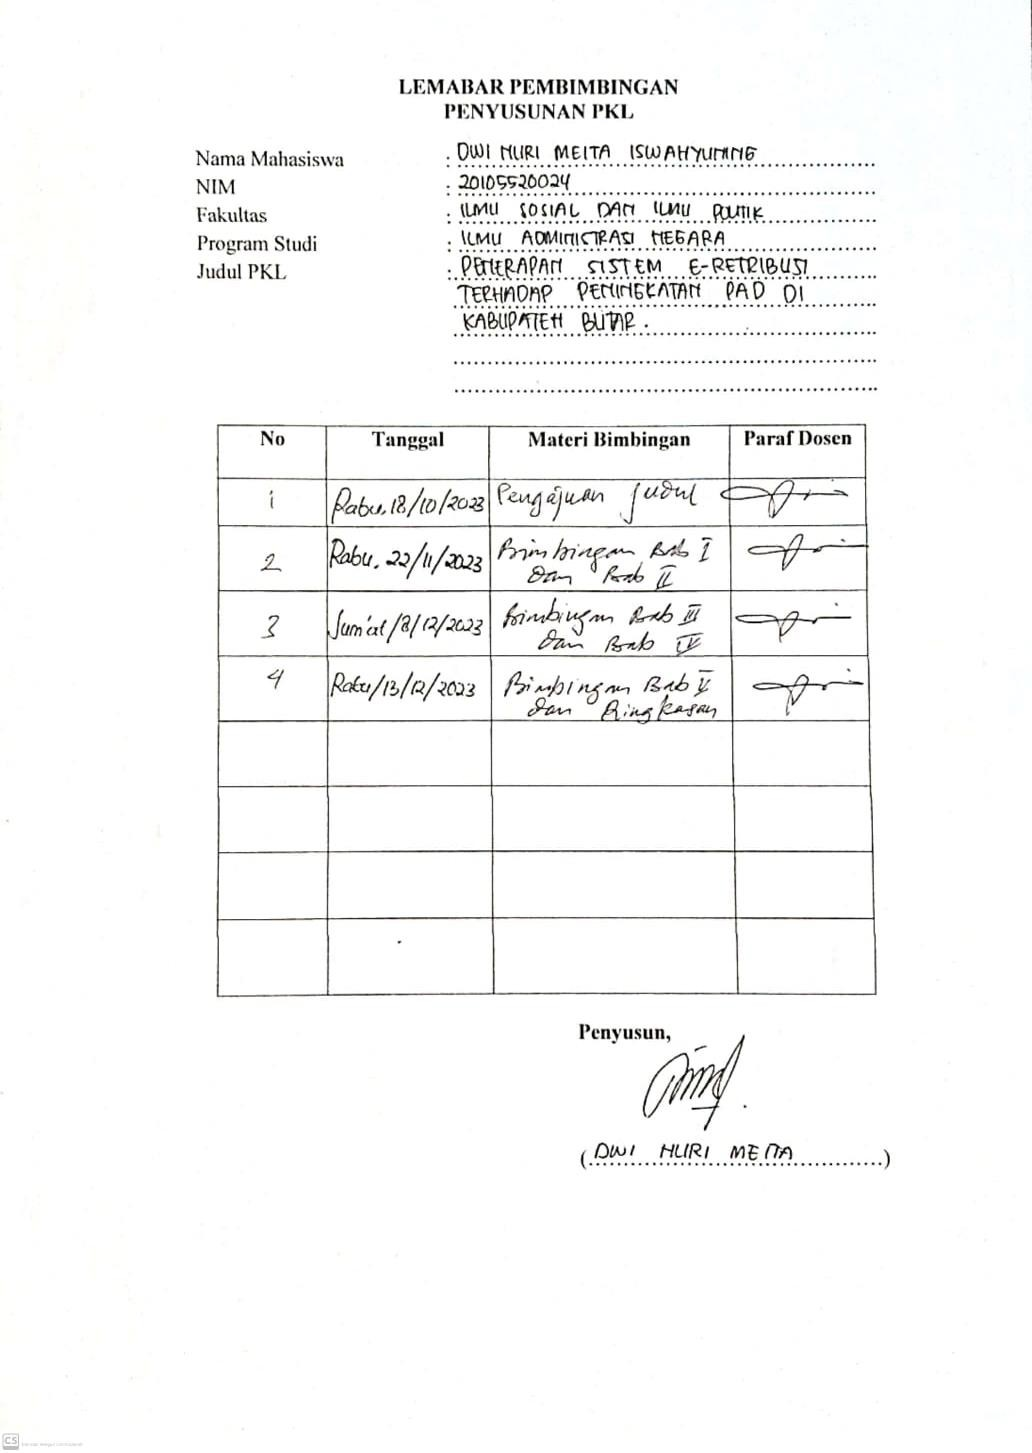 LEMABAR PEMBIMBINGAN
PENYUSUNAN PKL
Nama Mahasiswa : DWI NURI MEITA ISWAHYUNING
NIM : 20105520024
Fakultas : ILMU SOSIAL DAN ILMU POLITIK
Program Studi : ILMU ADMINISTRASI NEGARA
Judul PKL : PENERAPAN SISTEM E-RETRIBUSI
TERHADAP PENINGKATAN PAD DI
KABUPATEN BLITAR.
No Tanggal Materi Bimbingan Paraf Dosen
1 Rabu, 18/10/2023 Pengajuan Judul
2 Rabu, 22/11/2023 Bimbingan Bab I
dan Bab II
3 Jum'at/8/12/2023 Bimbingan Bab III
dan Bab IV
4 Rabu/13/12/2023 Bimbingan Bab V
dan Ringkasan
Penyusun,
(DWI NURI MEITA)
CS